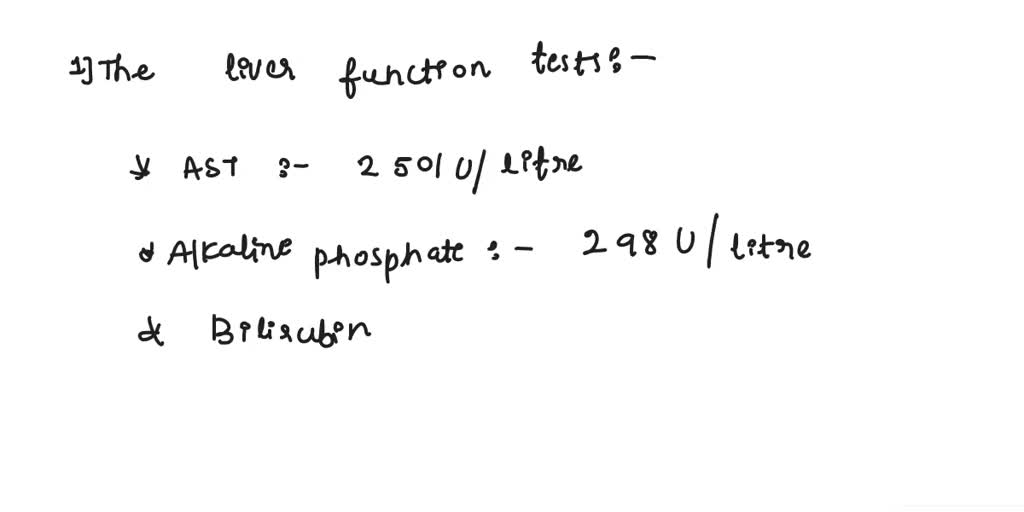 1] The liver function tests:-
* AST :- 2501 U/litre
* Alkaline phosphate :- 298 U/litre
* Bilirubin